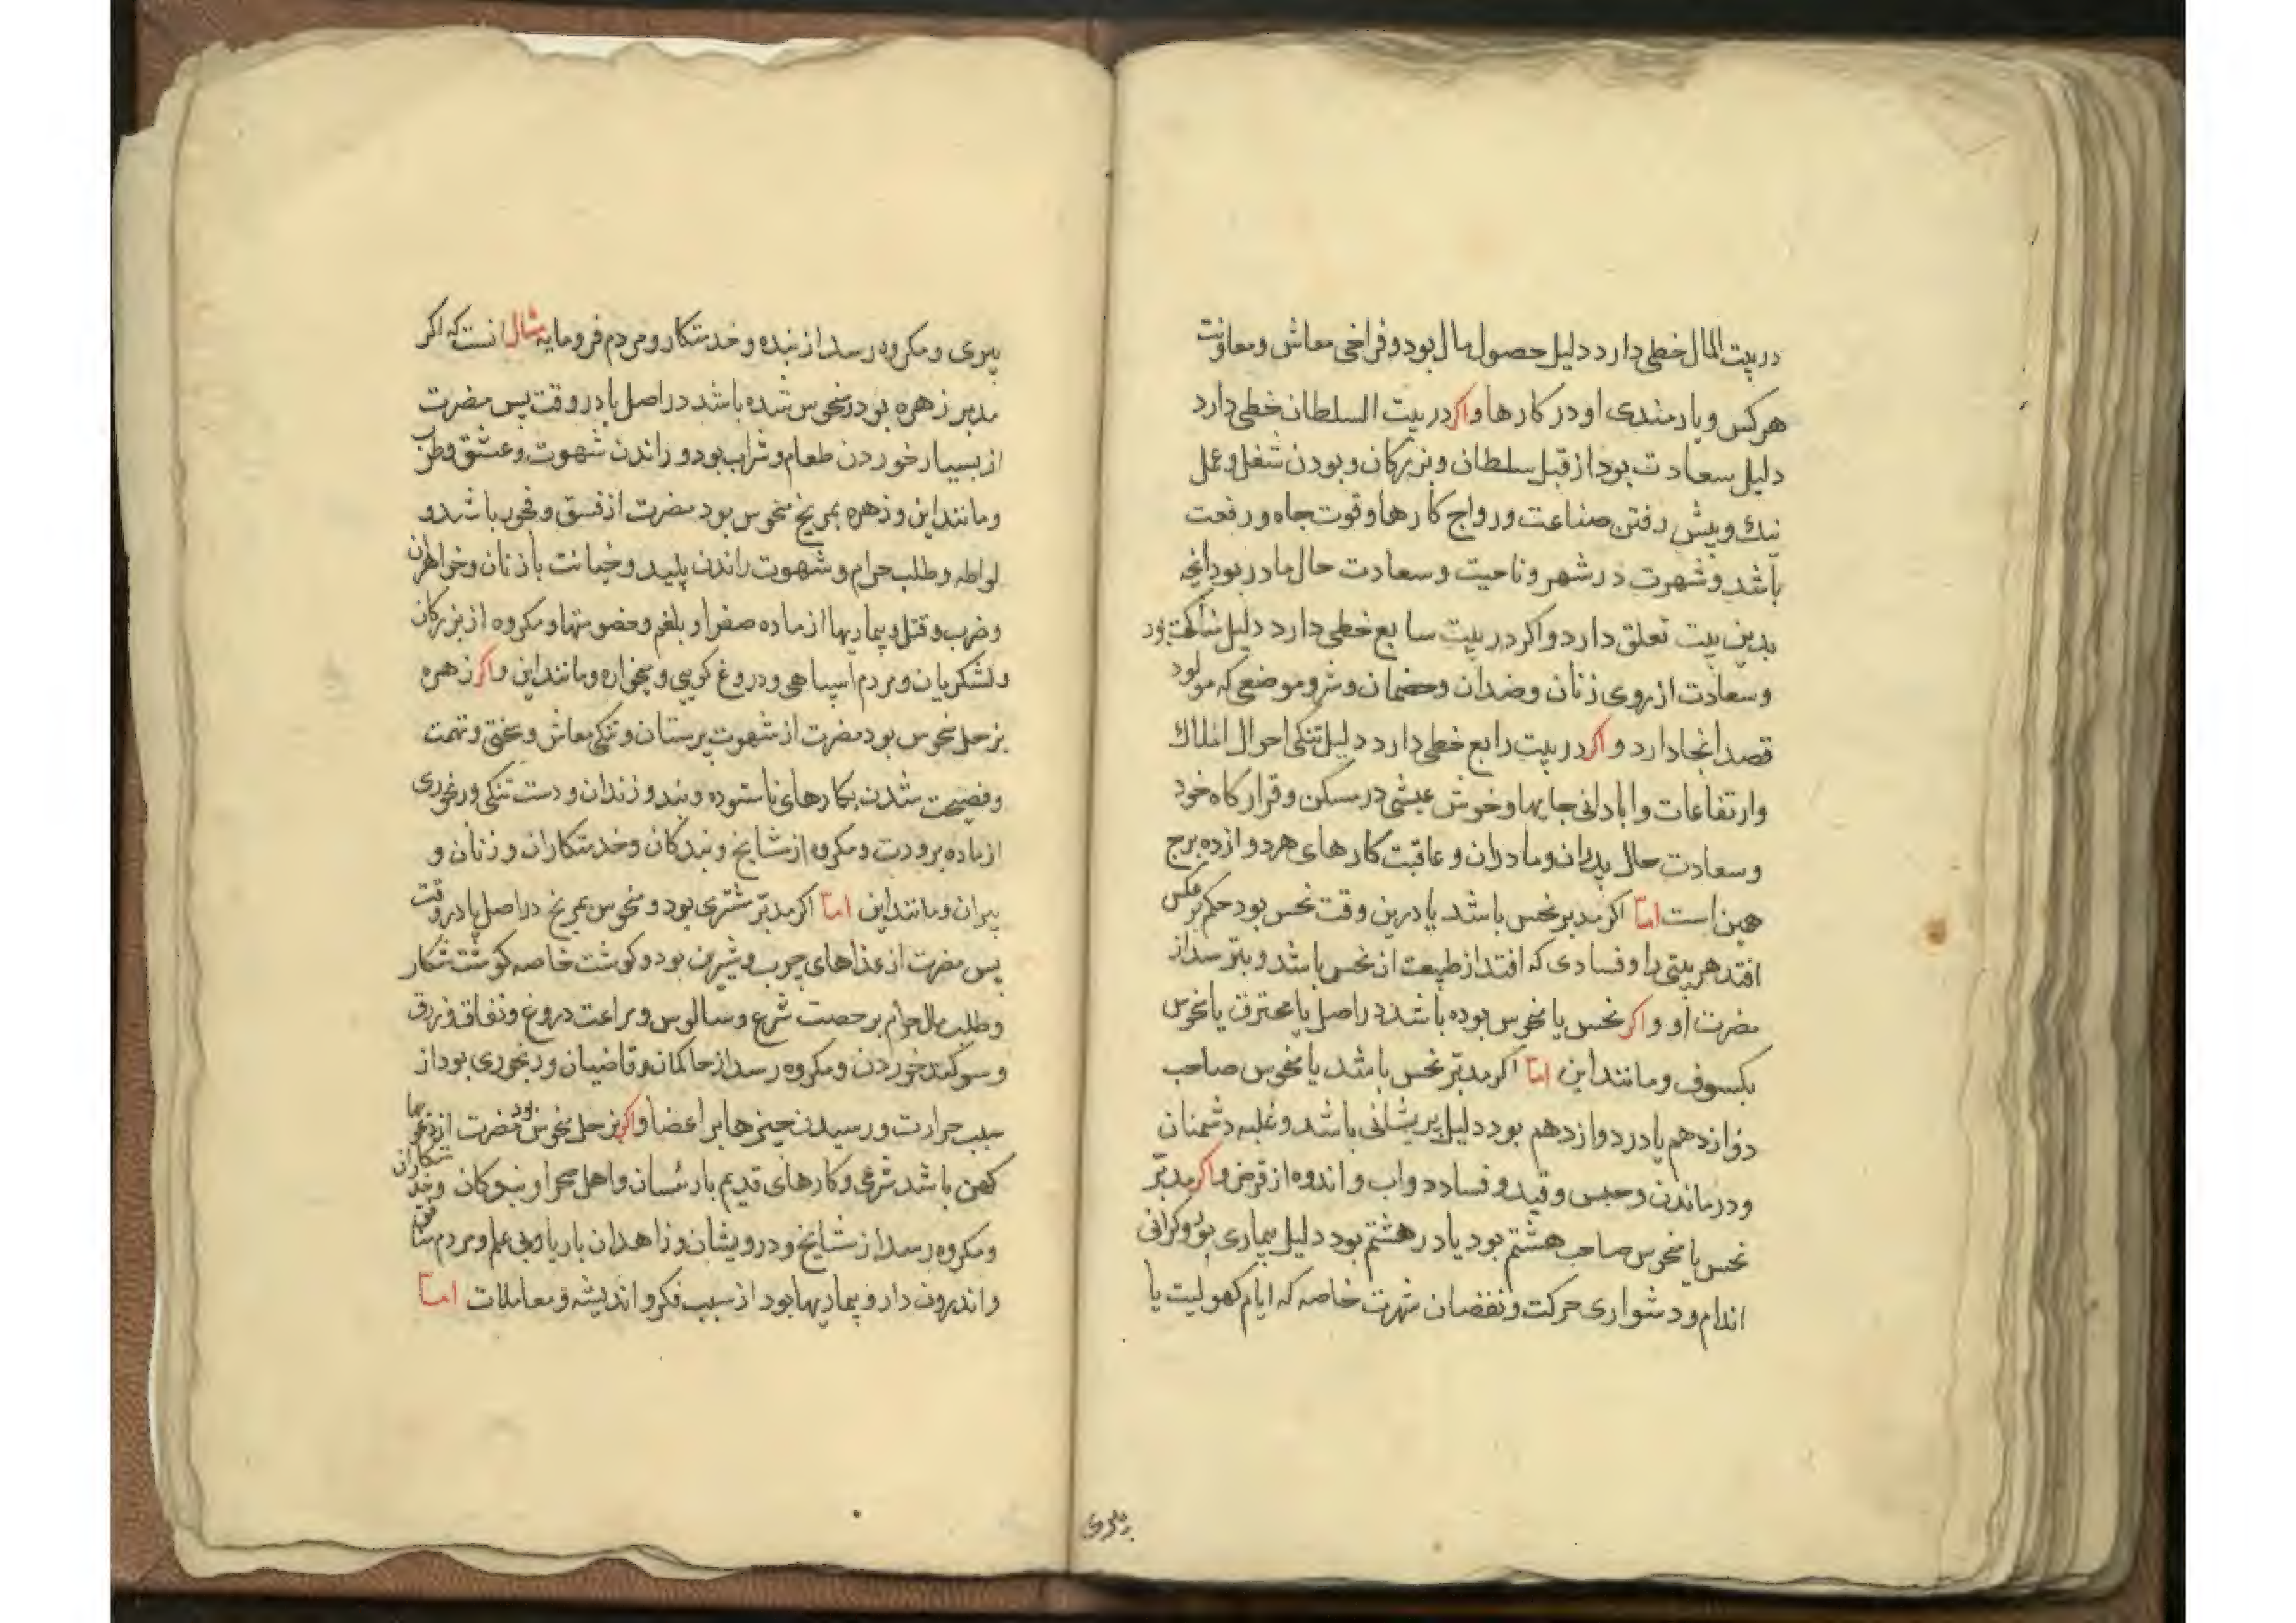 در بیت المال خطی دارد دلیل حصول مال بود و فراخی معاش و معاونت
هرکس و یارمندی او در کارها و اکر در بیت السلطان خطی دارد
دلیل سعادت بود از قبل سلطان و بزرکان و بودن شغل و عمل
نیك و پیش رفتن صناعت و رواج کارها و قوت جاه و رفعت
باشد و شهرت در شهر و ناحیت و سعادت حال مادر بود آنچه
بدین بیت تعلق دارد و اکر در بیت سابع خطی دارد دلیل مشارکت بود
و سعادت از روی زنان و ضدان و خصمان و موضعی که مولود
قصد آنجا دارد و اکر در بیت رابع خطی دارد دلیل تنکی احوال املاك
و ارتفاعات و ابادانی جایها و خوش عیشی در مسکن و قرارکاه خود
و سعادت حال پدران و مادران و عاقبت کارهای هر دوازده برج
همین است اما اکر مدبر نحس باشد یا درین وقت نحس بود حکم بر عکس
افتد هر بیتی را و فسادی که افتد از طبیعت ان نحس باشد و بتر رسد از
مضرت او و اکر نحس یا منحوس بوده باشد در اصل یا محترق یا منحوس
بکسوف و مانند این اما اکر مدبر نحس باشد یا منحوس صاحب
دوازدهم یا در دوازدهم بود دلیل پریشانی باشد و غلبه دشمنان
و درماندن و حبس و قید و فساد دواب و اندوه از قرض و اکر مدبر
نحس یا منحوس صاحب هشتم بود یا در هشتم بود دلیل بیماری بود و کرانی
اندام و دشواری حرکت و نقصان شهرت خاصه که ایام کهولیت یا
پیری
پیری و مکروه رسد از بنده و خدمتکار و مردم فرومایه مثال انست که اکر
مدبر زهره بود و منحوس شده باشد در اصل یا در وقت پس مضرت
از بسیار خوردن طعام و شراب بود و راندن شهوت و عشق و طرب
و مانند این و زهره بمریخ منحوس بود مضرت از فسق و فجور باشد و
لواطه و طلب حرام و شهوت راندن پلید و خیانت با زنان و خواهران
و ضرب و قتل و بیماریها از ماده صفرا و بلغم و خصومتها و مکروه از بزرکان
و لشکریان و مردم سپاهی و دروغ کویی و میخواره و مانند این و اکر زهره
بزحل منحوس بود مضرت از شهوت پرستان و تنکی معاش و سختی و تهمت
و فضیحت شدن بکارهای ناستوده و بند و زندان و دست تنکی و رنجوری
از ماده برودت و مکروه از مشایخ و بندکان و خدمتکاران و زنان و
پیران و مانند این اما اکر مدبر مشتری بود و منحوس بمریخ در اصل یا در وقت
پس مضرت از غذاهای چرب و شیرین بود و کوشت خاصه کوشت شکار
و طلب مال حرام برخصت شرع و سالوس و مراعت دروغ و نفاق و زرق
و سوکند خوردن و مکروه رسد از حاکمان و قاضیان و رنجوری بود از
سبب حرارت و رسیدن چیزها بر اعضا و اکر بزحل منحوس بود مضرت از
کهن باشد شرعی و کارهای قدیم با رئسان و اهل صحرا و خدمتکاران
و مکروه رسد از مشایخ و درویشان و زاهدان با ریا و بی علم و مردم منافق
و اندرون دار و بیماریها بود از سبب فکر و اندیشه و معاملات اما